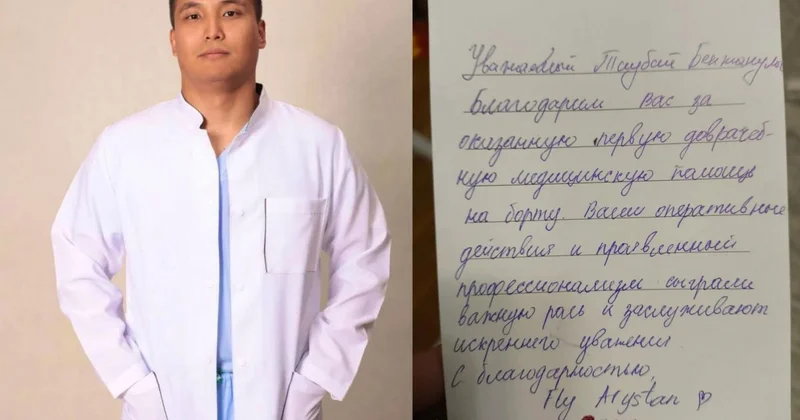 Уважаемый Таубай Бекжанулы
Благодарим Вас за
оказанную первую доврачеб-
ную медицинскую помощь
на борту. Ваши оперативные
действия и проявленный
профессионализм сыграли
важную роль и заслуживают
искреннего уважения.
С благодарностью,
Fly Arystan